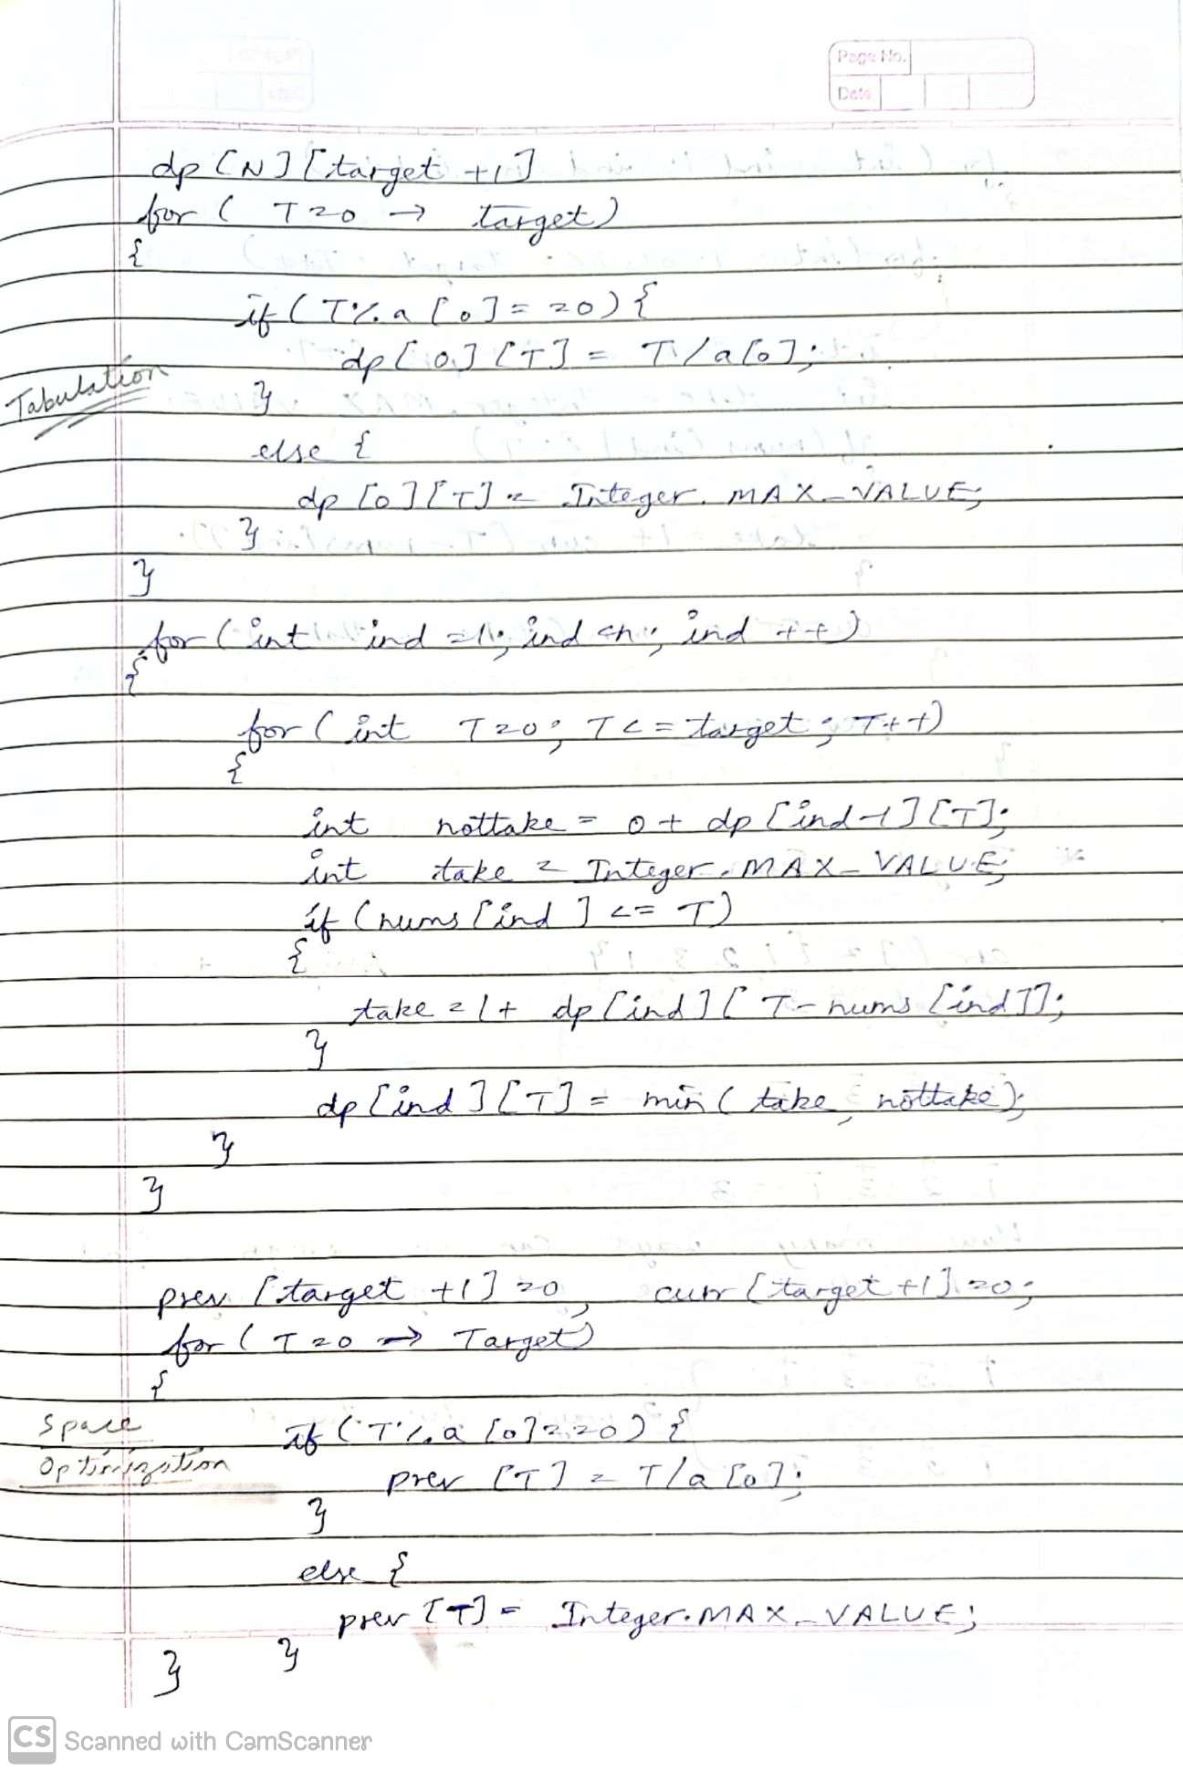 Page No.
Date
dp [N] [target +1]
for ( T=0 → target)
{
if ( T % a [0] == 0) {
dp [0] [T] = T / a[0];
Tabulation
}
else {
dp [0] [T] = Integer. MAX_VALUE;
}
}
for (int ind =1; ind <n; ind ++)
{
for ( int T=0; T<= target; T++)
{
int nottake = 0 + dp [ind-1] [T];
int take = Integer. MAX_VALUE;
if (nums [ind] <= T)
{
take =1+ dp [ind] [ T- nums [ind]];
}
dp [ind] [T] = min ( take, nottake);
}
}
prev [target +1] =0, curr [target +1] =0;
for ( T=0 → Target)
{
Space
if ( T % a [0] ==0) {
Optimization
prev [T] = T/a [0];
}
else {
prev [T] = Integer.MAX_VALUE;
}
}
CS Scanned with CamScanner